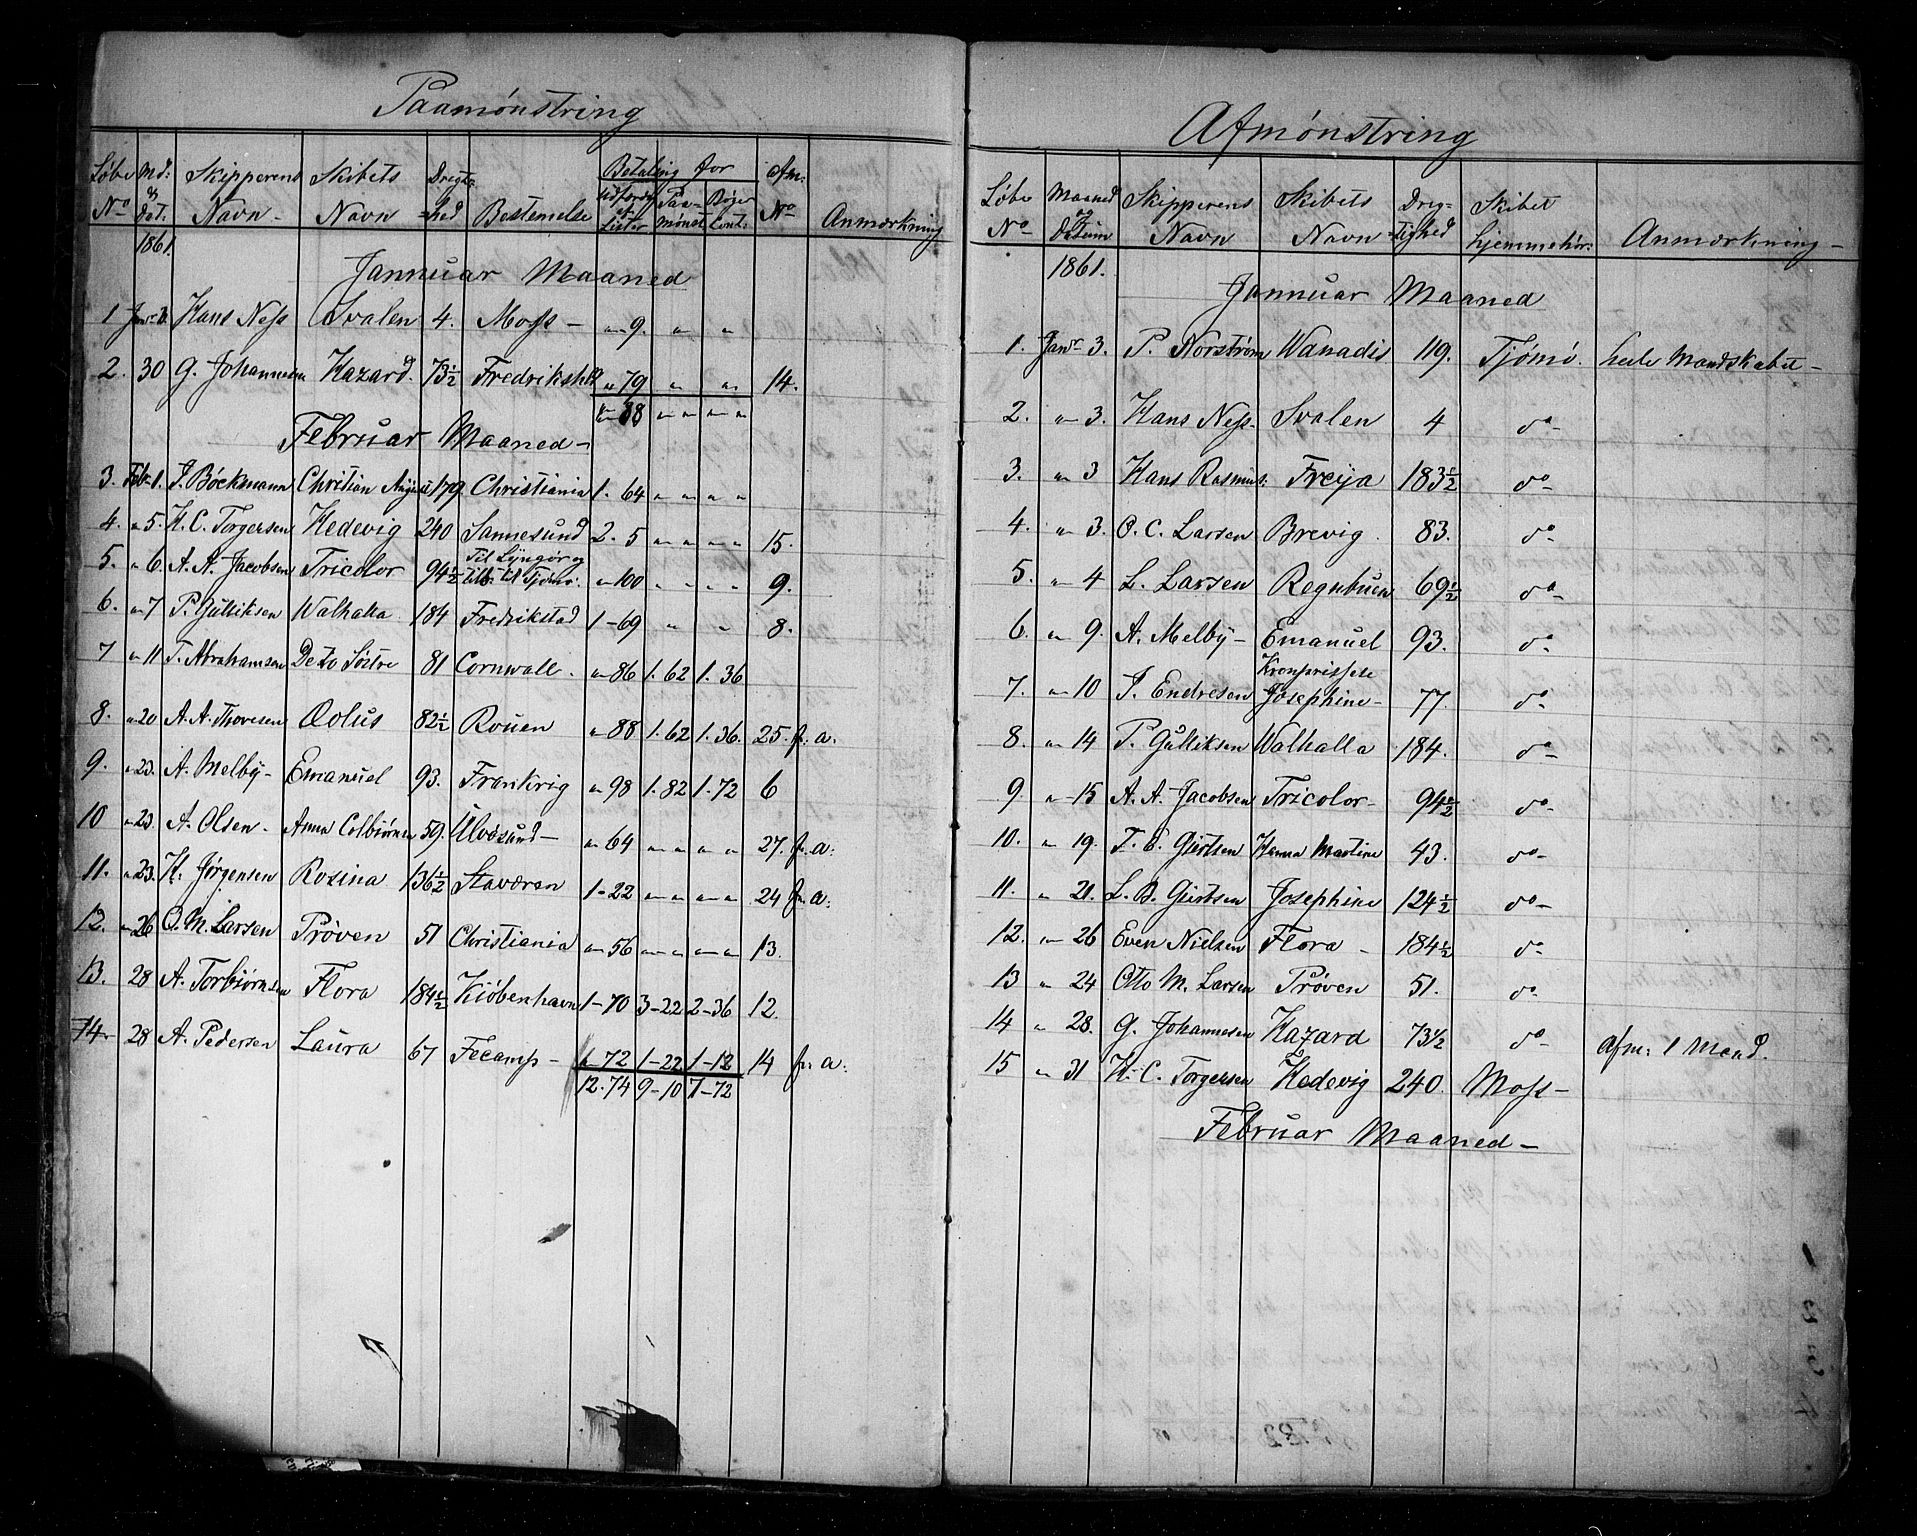 Paamønstring
Løbe No Md: & Dat. Skipperens Navn - Skibets Navn Drægtighed Bestemelse Betaling for Lister Paamønst Afm. No Anmærkning
1861.
Jannuar Maaned
1 Janr 3. Hans Ness Svalen 4. Moss - " 9. " "
2. 30 G. Johannesen Hazard. 73½ Fredrikshld " 79 " " 14.
" 88 " " " "
Februar Maaned -
3. Feb. 1. J. Böckmann Christian August 179. Christiania 1. 64 " " " "
4. " 5. H. C. Torgersen Hedevig 240 Sannesund 2. 5 " " " " 15.
5. " 6. A. A. Jacobsen Tricolor 94½ Til Lÿngör og tilb. til Tjömö. " 100 " " " 9.
6. " 7 P. Gulliksen Walhalla 184 Fredrikstad 1-69 " " 8.
7 " 11 T. Abrahamsen De to Söstre 81 Cornwall. " 86 1. 62 1. 36
8. " 20 A. A. Thoresen Æolus 82½ Rouen " 88 1. 62 1. 36. 25. fr. a.
9. " 23. A. Melby - Emanuel 93. Frankrig " 98 1. 82 1. 72 6
10 " 23. A. Olsen - Anna Colbiørnsen 59. Ulvösund - " 64 " " " " 27. fr. a:
11. " 23. H. Jørgensen Rosina 136½ Staværen 1-22 " " " " 24 fr. a:
12. " 26 O. M. Larsen Prøven 51 Christiania " 56 " " " " 13.
13. 28 A. Torbiørnsen Flora 184½ Kiöbenhavn 1-70 3-22 2-36 12.
14 28 A. Pedersen Laura 67 Fecamp - " 72 1-22 1-12 14 fr. a:
12.74 9-10 7-72
Afmønstring
Løbe No Maaned og Datum Skipperens Navn Skibets Navn Drægtighed Skibet hjemmehör: Anmærkning -
1861.
Jannuar Maaned
1. Janr 3. P. Norström Wanadis 119. Tjömö. hele Mandskabet -
2. " 3. Hans Ness- Svalen 4 do-
3. " 3 Hans Rasmus. Freya 183½ do-
4. " 3. O. C. Larsen Brevig. 83. do-
5. " 4 L. Larsen Regnbuen 69½ do-
6. " 9. A. Melby - Emanuel 93. do-
7. " 10 J. Endresen Kronprissese Josephine- 77. do-
8. " 14 P. Gulliksen Walhalla 184. do-
9. " 15 A. A. Jacobsen Tricolor- 94½ do-
10. " 19. T. C. Giertsen Hanna Martine 43. do-
11. " 21. L. B. Giertsen Josephine 124½ do-
12. " 26 Even Nielsen Flora - 184½ do-
13 " 24 Otto M. Larsen Prøven 51. do-
14 " 28. G. Johannesen Hazard 73½ do- Afm: 1 Mand.
15 " 31 H. C. Torgersen Hedevig 240. Moss-
Februar Maaned -